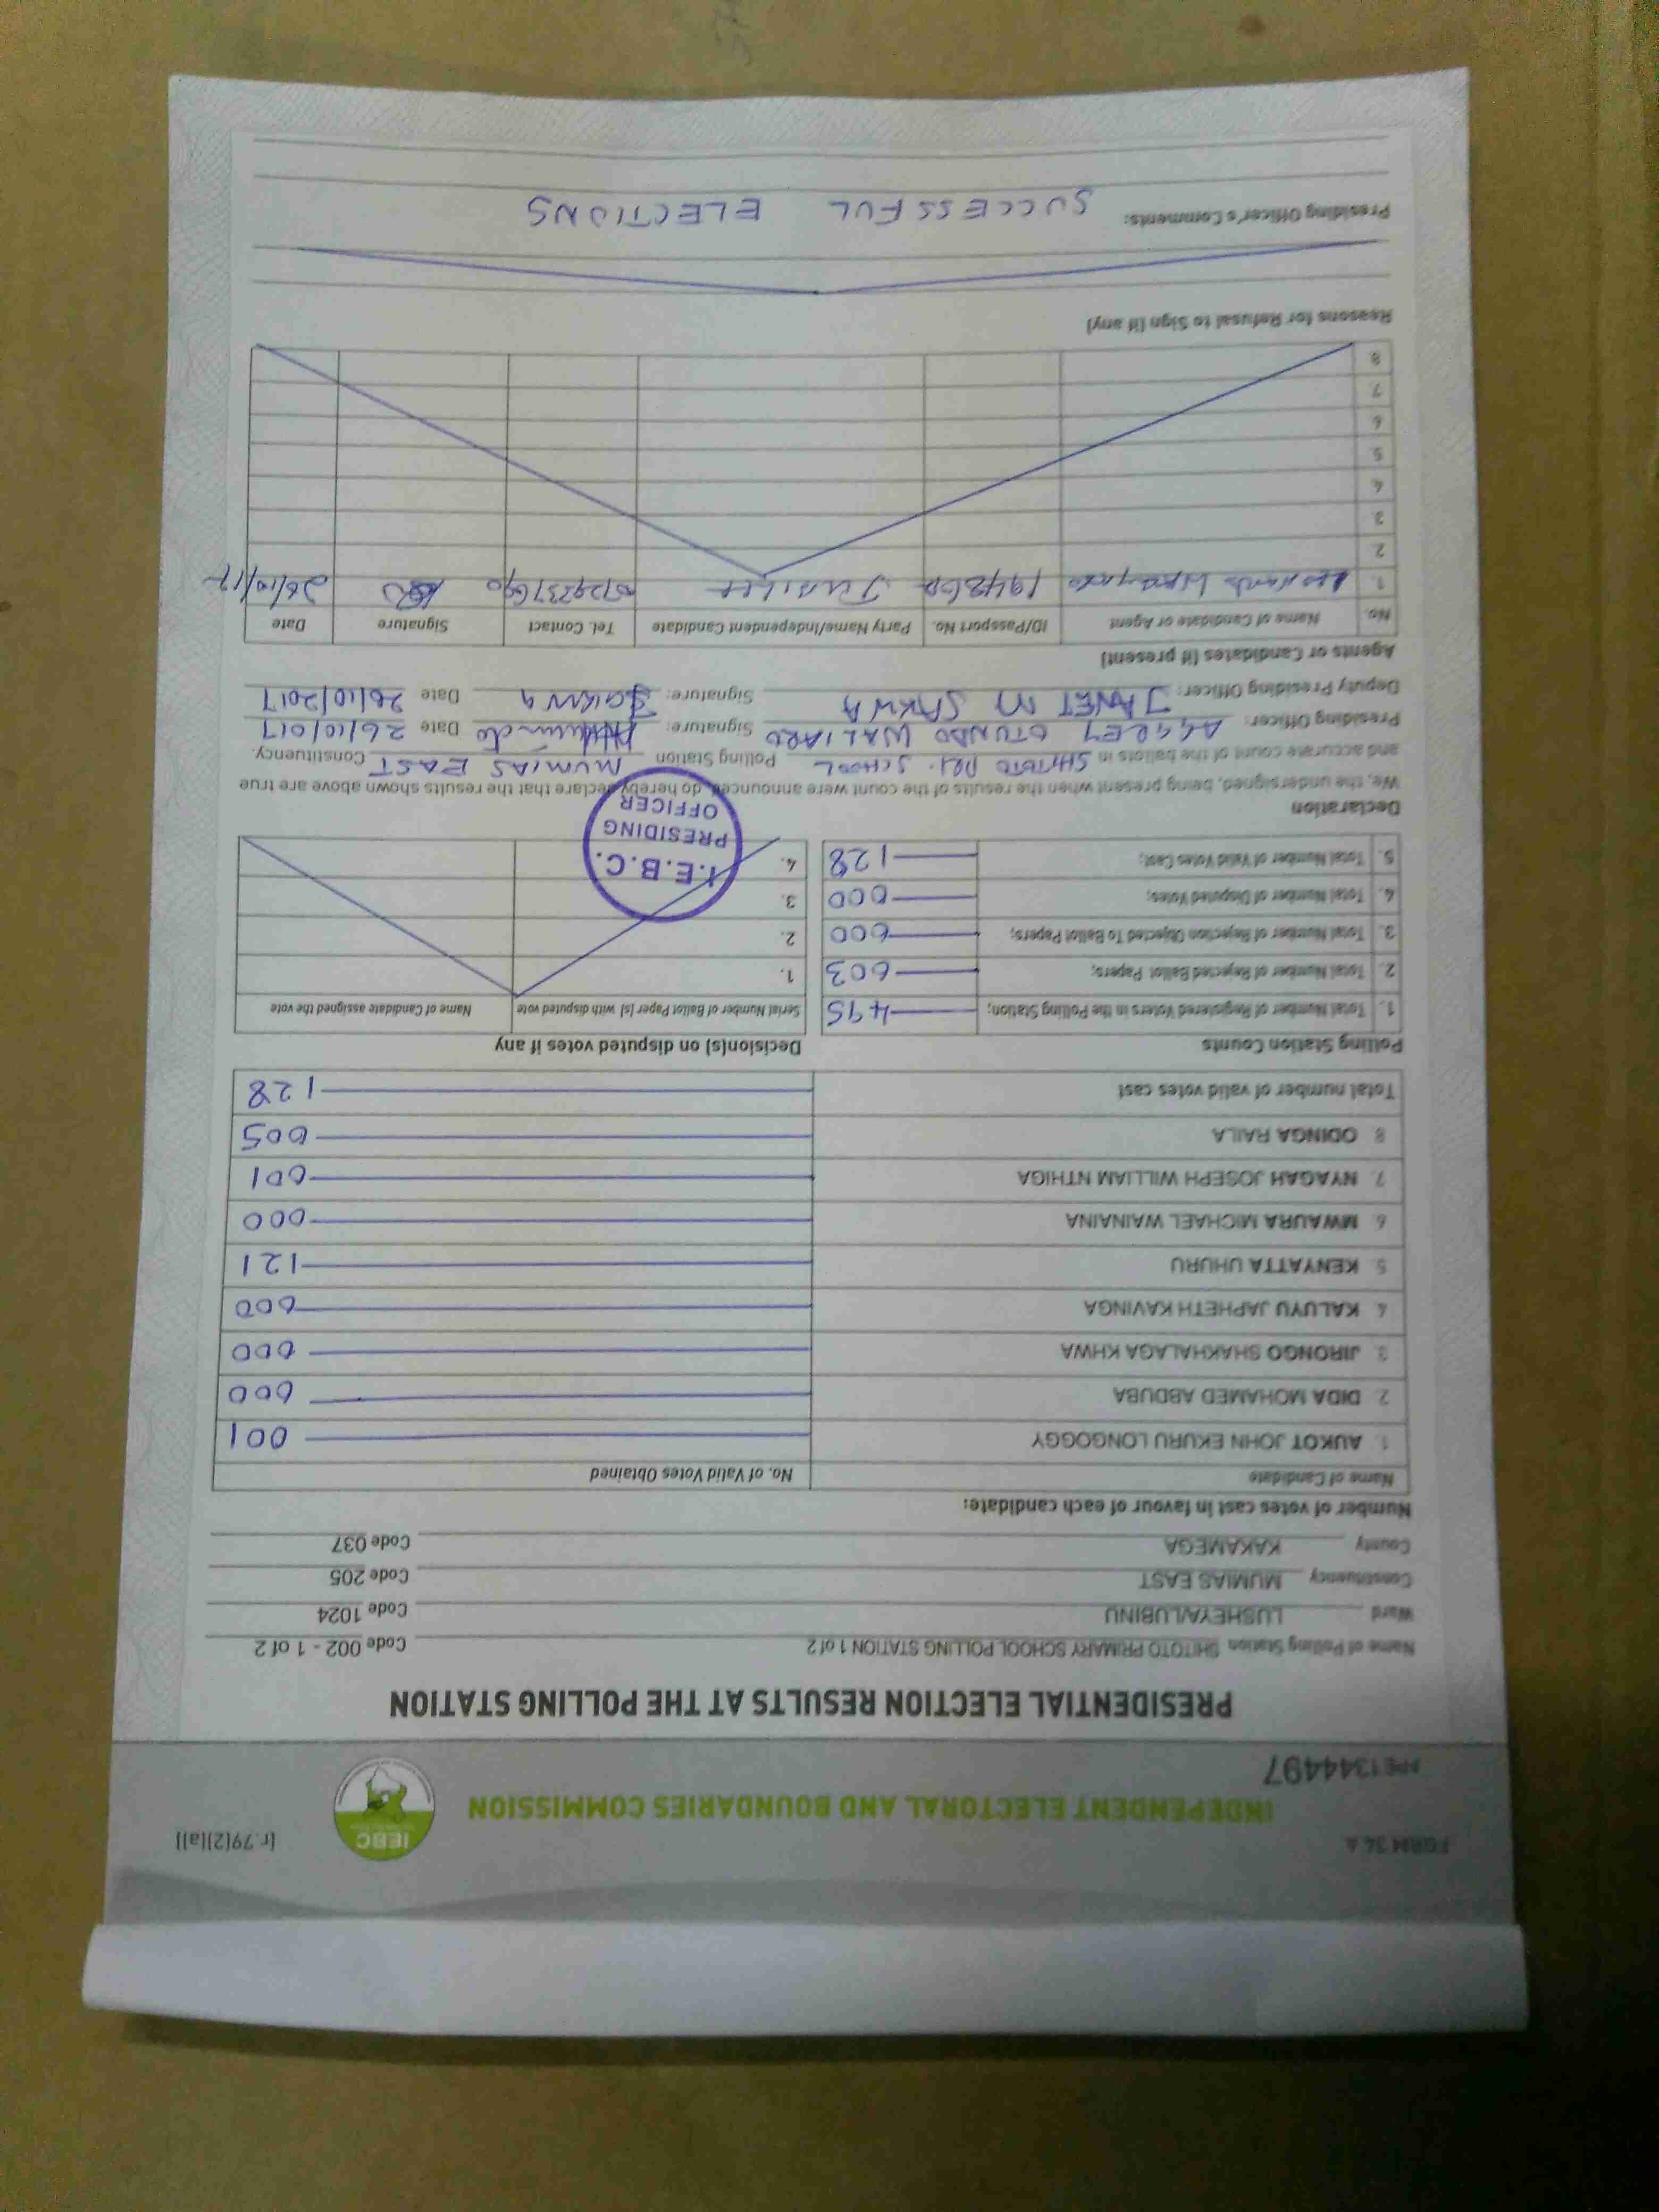 FORM 34 A
(r.79(2)(a))
INDEPENDENT ELECTORAL AND BOUNDARIES COMMISSION
IEBC
PPE 1344497
PRESIDENTIAL ELECTION RESULTS AT THE POLLING STATION
Name of Polling Station SHITOTO PRIMARY SCHOOL POLLING STATION 1 of 2 Code 002 - 1 of 2
Ward LUSHEYA/LUBINU Code 1024
Constituency MUMIAS EAST Code 205
County KAKAMEGA Code 037
Number of votes cast in favour of each candidate:
Name of Candidate No. of Valid Votes Obtained
1 AUKOT JOHN EKURU LONGOGGY 001
2 DIDA MOHAMED ABDUBA 000
3 JIRONGO SHAKHALAGA KHWA 000
4 KALUYU JAPHETH KAVINGA 000
5 KENYATTA UHURU 121
6 MWAURA MICHAEL WAINAINA 000
7 NYAGAH JOSEPH WILLIAM NTHIGA 001
8 ODINGA RAILA 005
Total number of valid votes cast 128
Polling Station Counts
1. Total Number of Registered Voters in the Polling Station; 495
2. Total Number of Rejected Ballot Papers; 003
3. Total Number of Rejection Objected To Ballot Papers; 000
4. Total Number of Disputed Votes; 000
5. Total Number of Valid Votes Cast; 128
Decision(s) on disputed votes if any
Serial Number of Ballot Paper (s) with disputed vote Name of Candidate assigned the vote
1.
2.
3.
4.
I.E.B.C.
PRESIDING
OFFICER
Declaration
We, the undersigned, being present when the results of the count were announced, do hereby declare that the results shown above are true
and accurate count of the ballots in SHITOTO PRI. SCHOOL Polling Station MUMIAS EAST Constituency.
Presiding Officer: AGGREY OTUNDO WALIARO Signature: Date 26/10/017
Deputy Presiding Officer: JANET M SAKWA Signature: Sakwa Date 26/10/2017
Agents or Candidates (if present)
No. Name of Candidate or Agent ID/Passport No. Party Name/Independent Candidate Tel. Contact Signature Date
1. Jubilee 26/10/17
2
3
4
5
6
7
8
Reasons for Refusal to Sign (if any)
Presiding Officer's Comments: SUCCESSFUL ELECTIONS